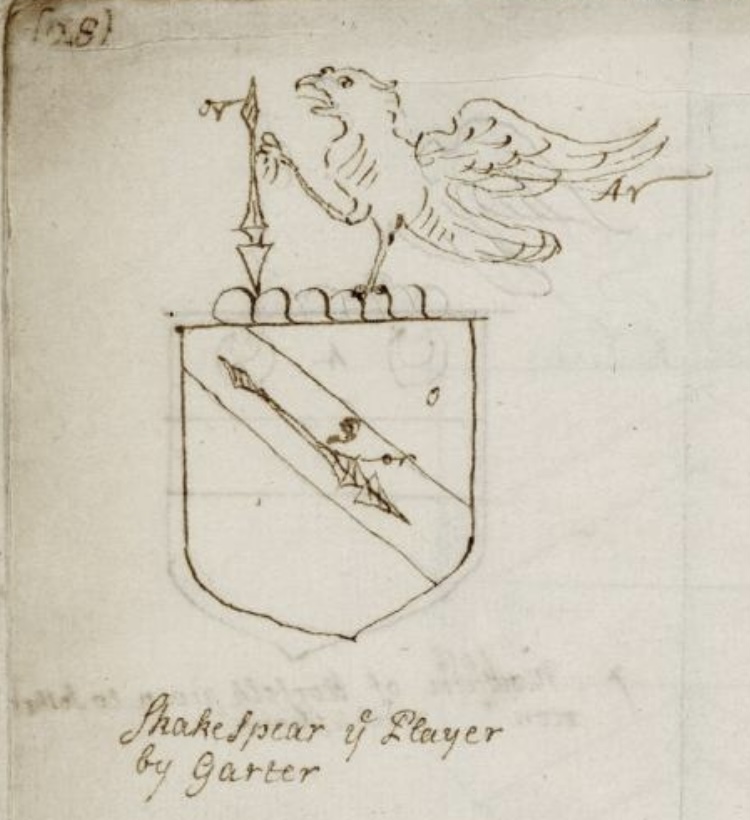 or
Ar
o
S
or
Shakespear yͤ Player
by Garter